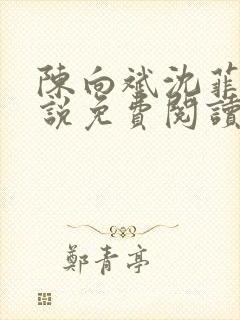 陳向斌沈菲
說免費閱讀
鄭青亭